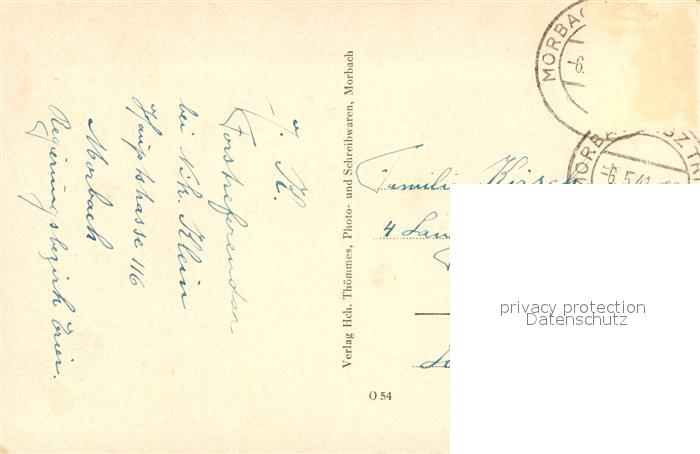 J. K.
Forstreferendar
bei Nik. Klein
Hauptstrasse 116
Morbach
Regierungsbezirk Trier.
Verlag Hch. Thömmes, Photo- und Schreibwaren, Morbach
O 54
MORBAC
-6.
MORB
-6.5.41
Familie
4
privacy protection
Datenschutz